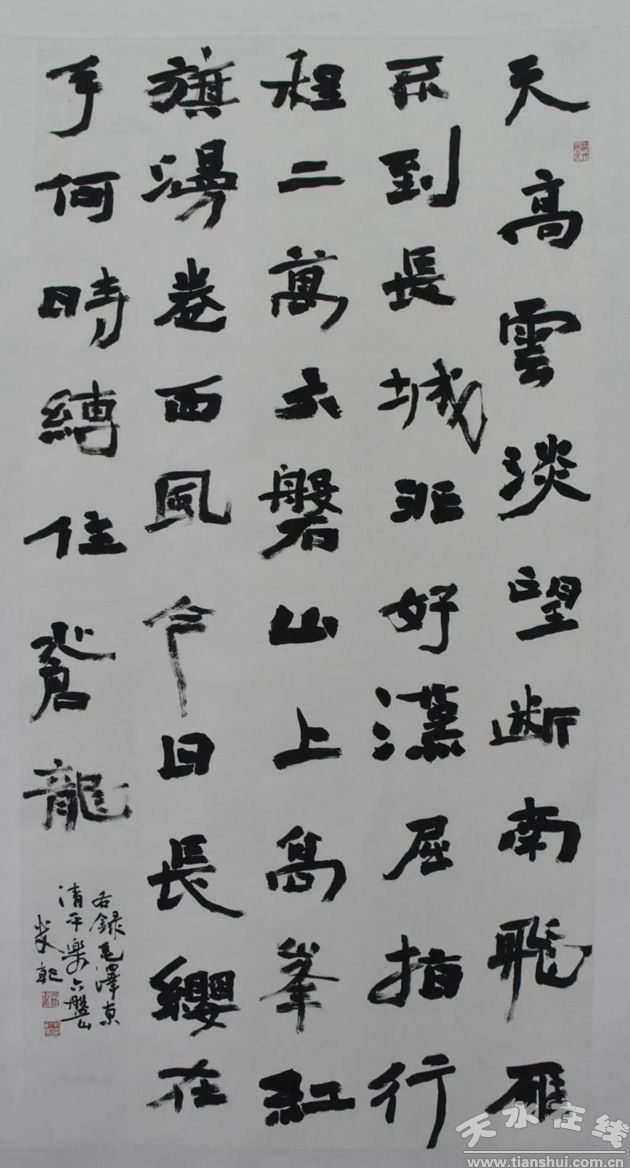 天高雲淡望断南飛雁
不到長城非好漢屈指行
程二萬六磐山上高峯紅
旗漫卷西風今日長纓在
手何時縛住蒼龍
右錄毛澤東
清平樂六盤山
天水在线
www.tianshui.com.cn